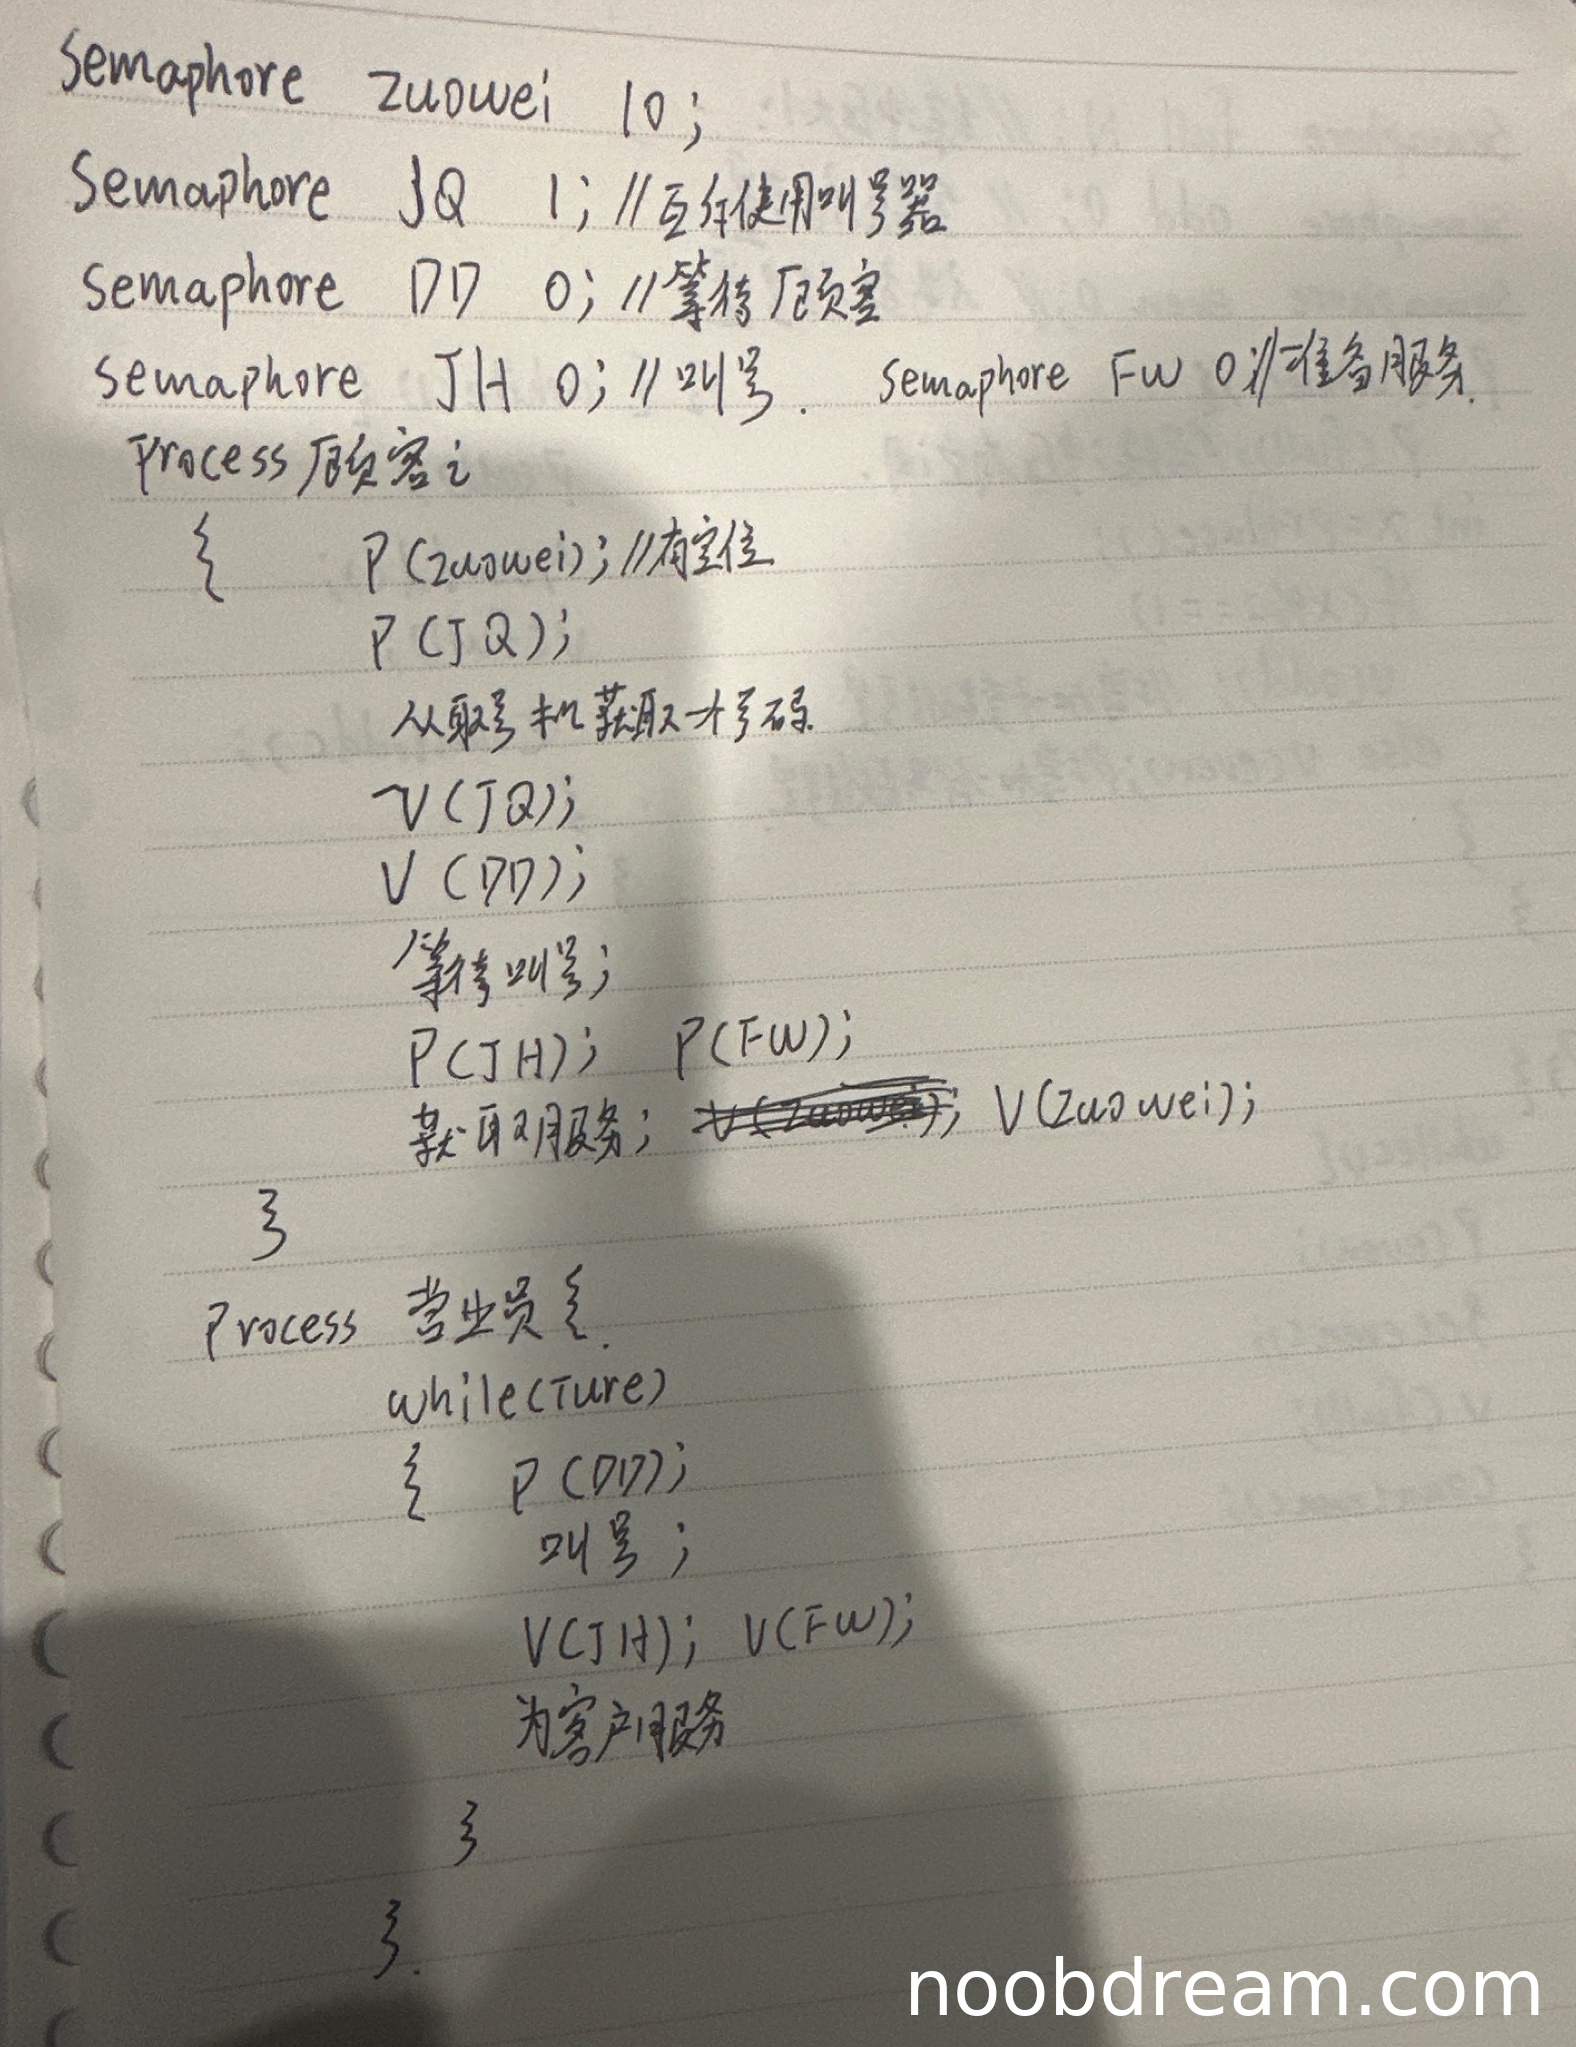 Semaphore zuowei 10;
Semaphore JQ 1; //互斥使用叫号器
Semaphore DD 0; //等待顾客
Semaphore JH 0; //叫号. Semaphore FW 0; //准备服务.
Process 顾客i
{ P(zuowei); //有空位
P(JQ);
从取号机获取一个号码.
V(JQ);
V(DD);
等待叫号;
P(JH); P(FW);
获取服务; V(zuowei); V(zuowei);
}
Process 营业员 {.
while(Ture)
{ P(DD);
叫号;
V(JH); V(FW);
为客户服务
}
}.
noobdream.com